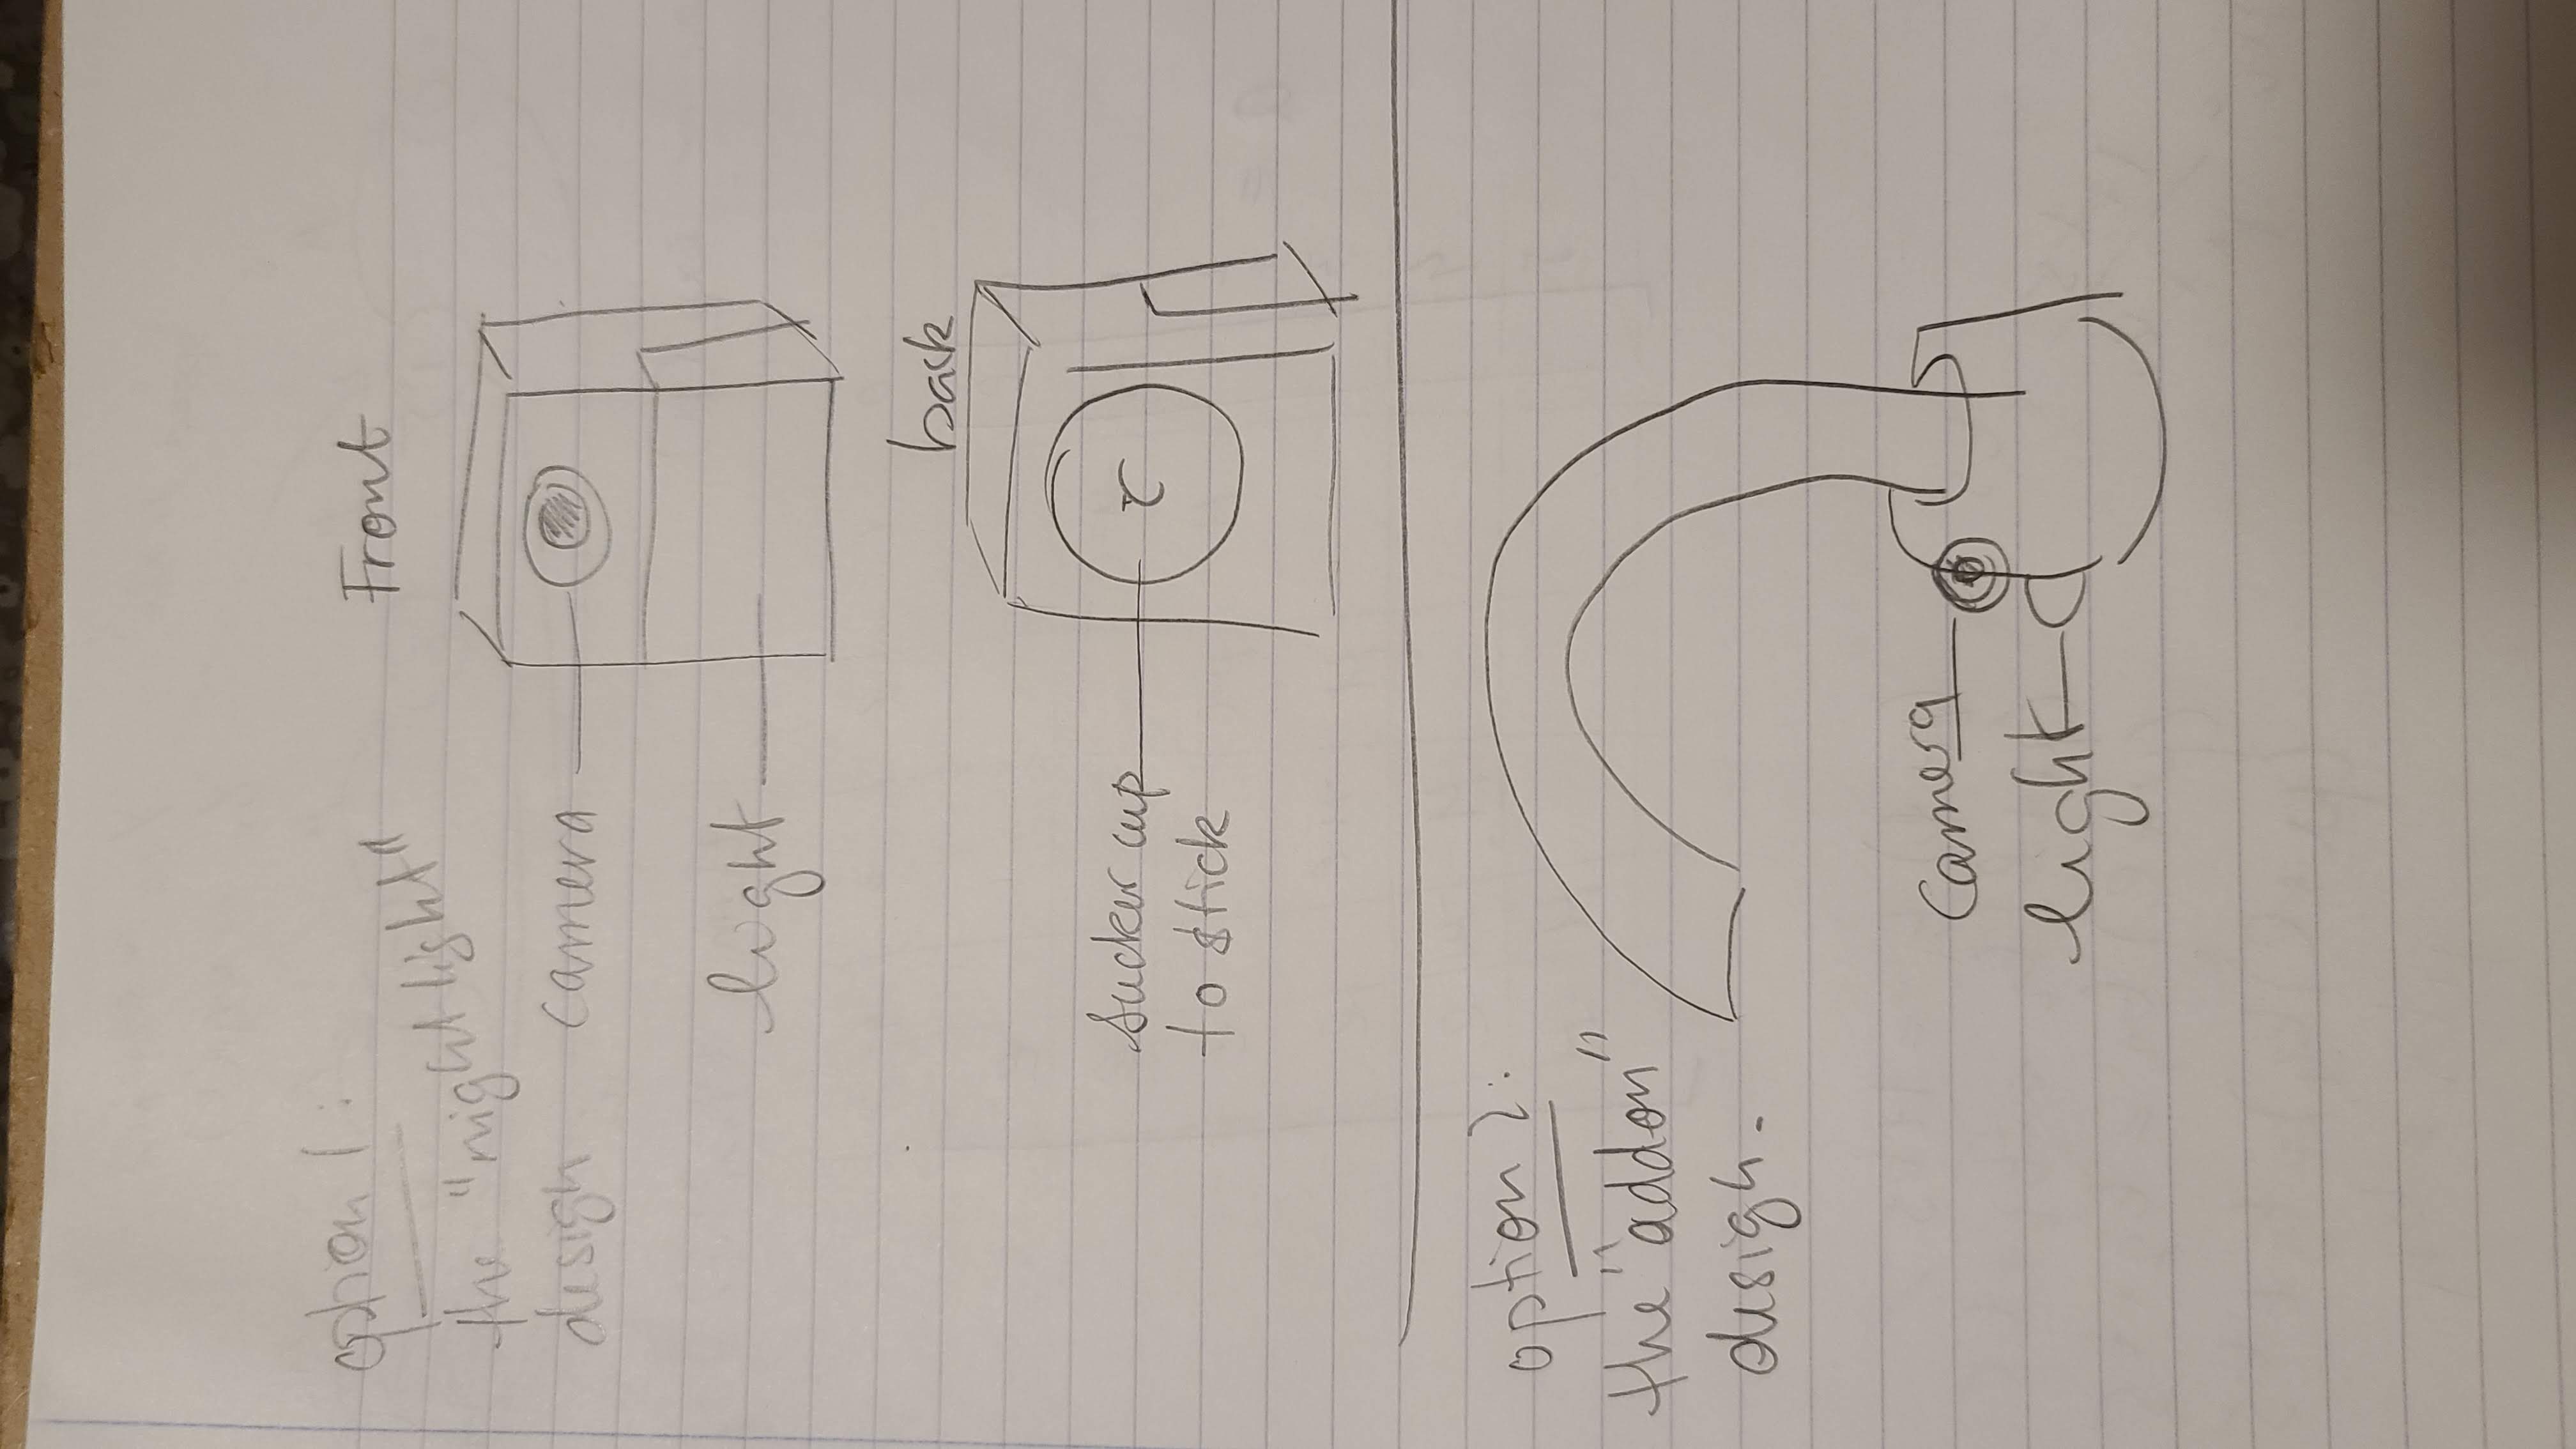 option 1:
the "night light"
design
Front
camera
light
back
sucker cup
to stick
option 2:
the "addon"
design.
Camera
light